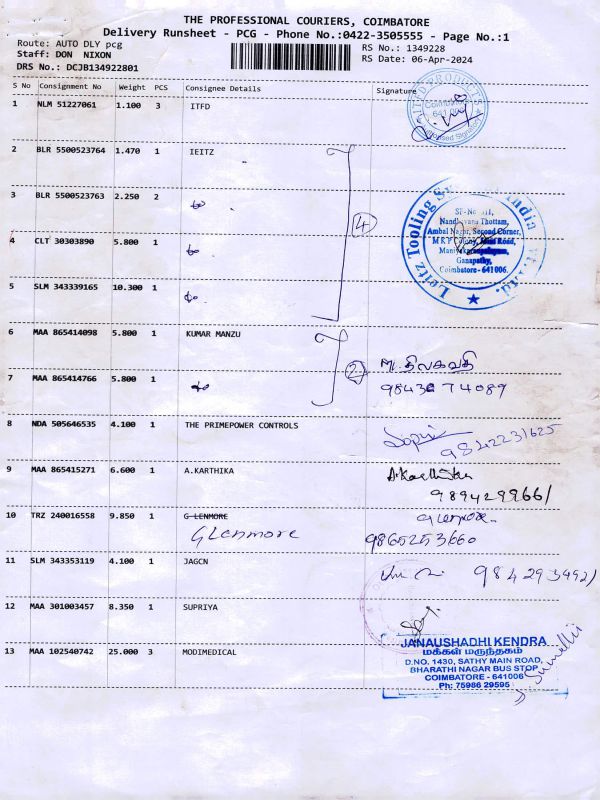 THE PROFESSIONAL COURIERS, COIMBATORE
Delivery Runsheet - PCG - Phone No.:0422-3505555 - Page No.:1
Route: AUTO DLY pcg
Staff: DON NIXON
DRS No.: DCJB134922801
RS No.: 1349228
RS Date: 06-Apr-2024
S No Consignment No Weight PCS Consignee Details Signature
1 NLM 51227061 1.100 3 ITFD
2 BLR 5500523764 1.470 1 IEITZ
3 BLR 5500523763 2.250 2 do
4 CLT 30303890 5.800 1 do
5 SLM 343339165 10.300 1 do
4
Leitz Tooling
India
Nandhavana Thottam,
Ambal Nagar, Second Corner,
Ganapathy,
Coimbatore - 641006.
6 MAA 865414098 5.800 1 KUMAR MANZU
7 MAA 865414766 5.800 1 do
2
M. திலகவதி
8 NDA 505646535 4.100 1 THE PRIMEPOWER CONTROLS
9842231625
9 MAA 865415271 6.600 1 A.KARTHIKA
A.Karthika
10 TRZ 240016558 9.850 1 G LENMORE
Glenmore
Glenmore.
11 SLM 343353119 4.100 1 JAGCN
12 MAA 301003457 8.350 1 SUPRIYA
13 MAA 102540742 25.000 3 MODIMEDICAL
JANAUSHADHI KENDRA
மக்கள் மருந்தகம்
D.NO. 1430, SATHY MAIN ROAD,
BHARATHI NAGAR BUS STOP
COIMBATORE - 641006
Ph: 75986 29595